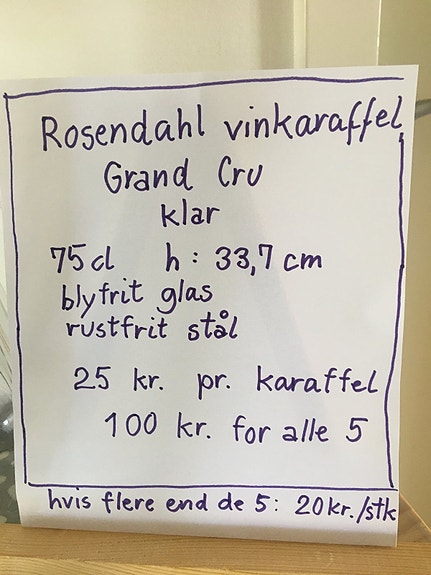 Rosendahl vinkaraffel
Grand Cru
klar
75 cl h: 33,7 cm
blyfrit glas
rustfrit stål
25 kr. pr. karaffel
100 kr. for alle 5
hvis flere end de 5: 20 kr./stk